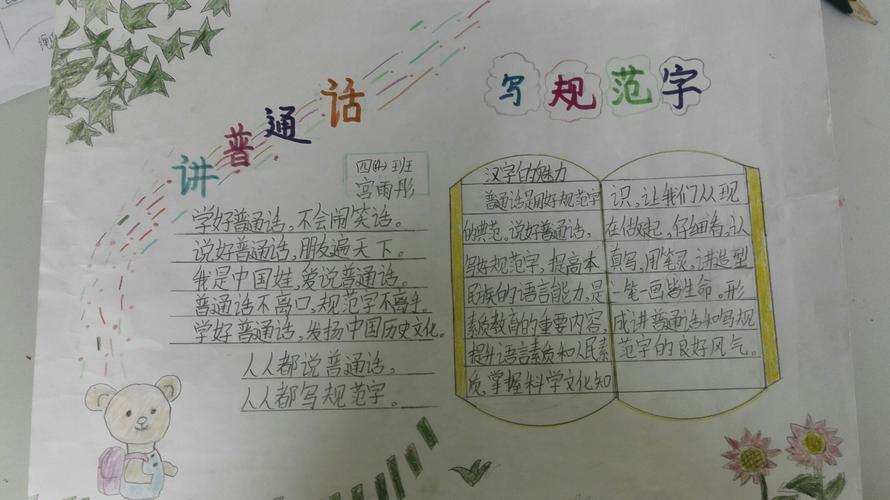 讲普通话
写规范字
四(4)班
宫雨彤
学好普通话,不会闹笑话。
说好普通话,朋友遍天下。
我是中国娃,爱说普通话。
普通话不离口,规范字不离手。
学好普通话,发扬中国历史文化。
人人都说普通话,
人人都写规范字。
汉字的魅力
普通话是用好规范字
的典范。说好普通话,
写好规范字,提高本
民族的语言能力,是
素质教育的重要内容,
提升语言素质和人民素
质,掌握科学文化知
识,让我们从现
在做起,仔细看,认
真写,用笔灵,讲造型
一笔一画皆生命。形
成讲普通话和写规
范字的良好风气。